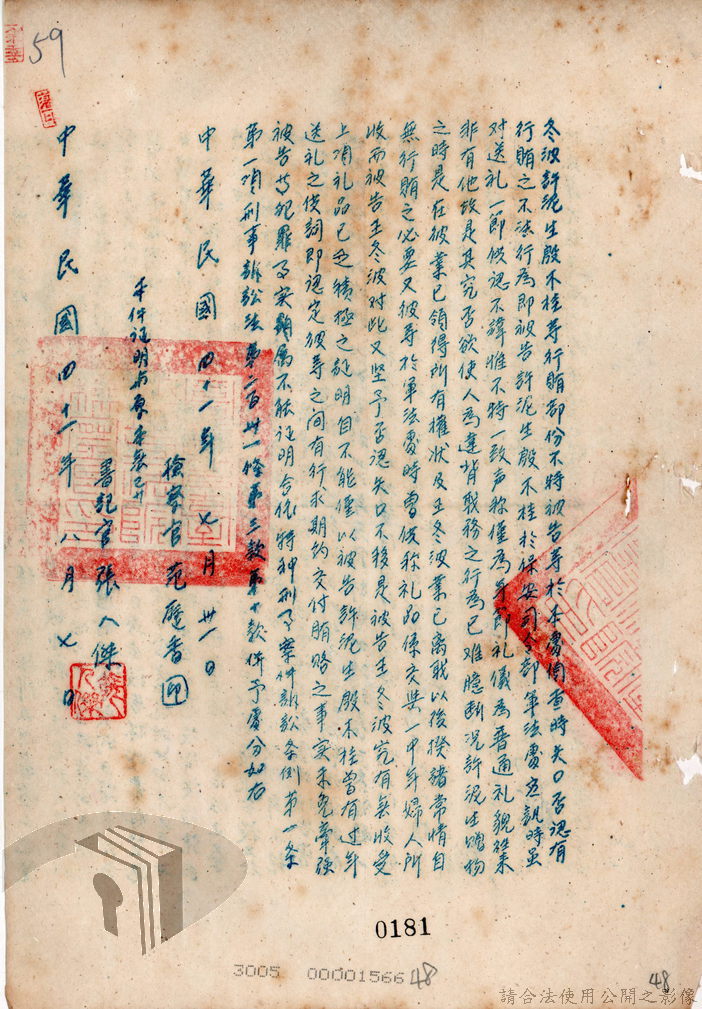 冬波許泥生殷不桂等行賄部份不特被告等於本處偵查時矢口否認有
行賄之不法行為即被告許泥生殷不桂於保安司令部軍法處應訊時虽
对送礼一節供認不諱惟不特一致声称僅為年節礼儀為普通礼貌往來
非有他故是其究否欲使人為違背职務之行為已难臆断況許泥生贈物
之時是在彼業已領得所有權狀及王冬波業已离职以後揆諸常情自
無行賄之必要又彼等於軍法處時曾供称礼品係交與一中年婦人所
收而被告王冬波对此又坚予否認矢口不移是被告王冬波究有無收受
上項礼品已乏積極之証明自不能僅以被告許泥生殷不桂曾有过年
送礼之供詞即認定彼等之间有行求期約交付賄賂之事实未免牽強
被告等犯罪事实均属不能证明合依特种刑事案件訴訟条例第一条
第一項刑事訴訟法第二百卅一條第三款第十款併予處分如右
中華民國四十一年七月卅一日
檢察官范蔭香 印
本件证明与原本無異
書記官張人傑
中華民國四十一年八月七日
59
0181
3005 00001566 48
48
請合法使用公開之影像